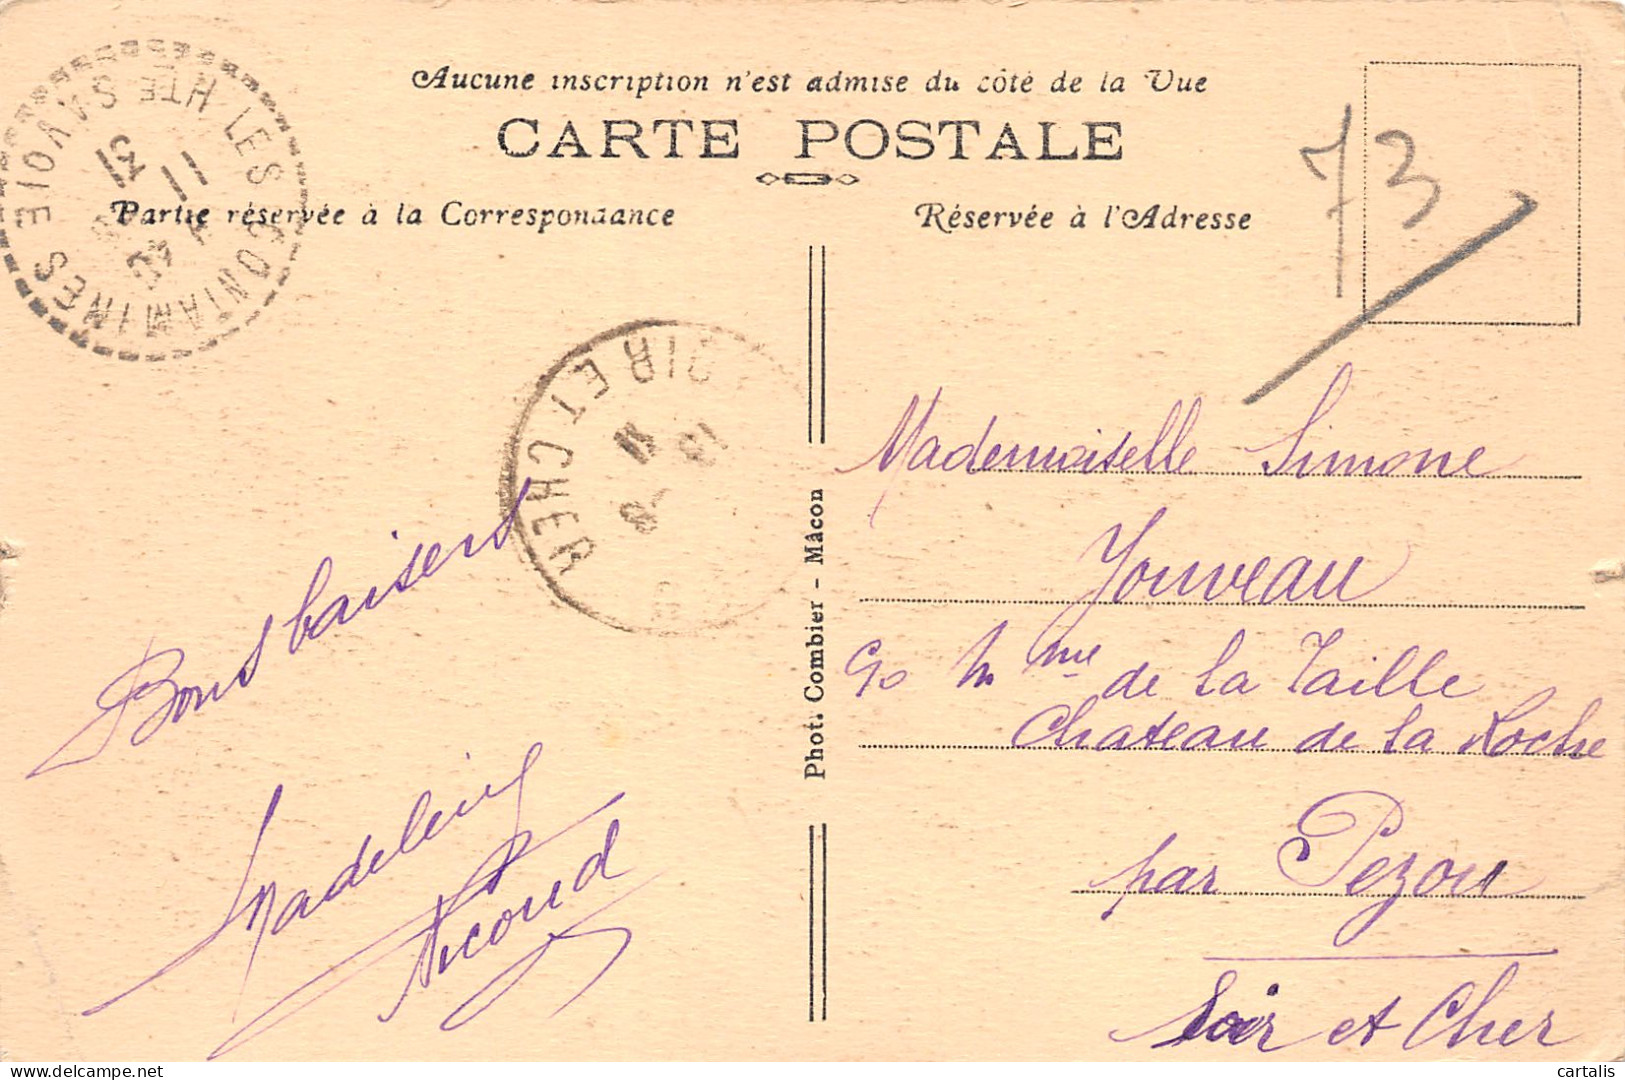 Aucune inscription n'est admise du côté de la Vue
CARTE POSTALE
Partie réservée à la Correspondance
Réservée à l'Adresse
73
LES CONTAMINES
HTE SAVOIE
LOIR ET CHER
Bons baisers
Madeleine
Phot. Combier - Mâcon
Mademoiselle Simone
Jouveau
Mme de la Taille
Chateau de la Roche
par Pezou
Loir et Cher
cartalis